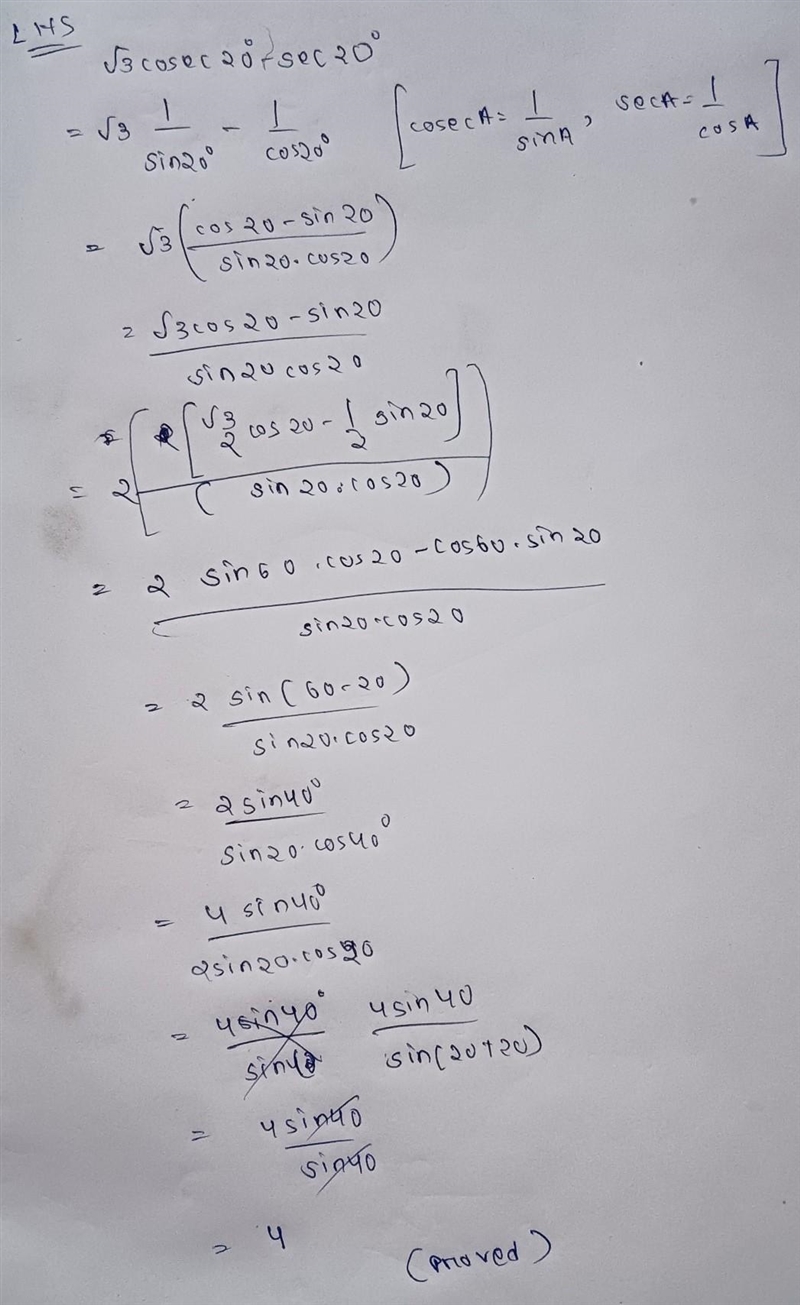 LHS
√3 cosec 20° - sec 20°
= √3 1/sin20° - 1/cos20° [cosec A = 1/sin A, sec A = 1/cos A]
= √3 (cos 20 - sin 20 / sin 20 · cos 20)
= √3 cos 20 - sin 20 / sin 20 cos 20
= 2 [ [√3/2 cos 20 - 1/2 sin 20] / (sin 20 · cos 20) ]
= 2 sin 60 · cos 20 - cos 60 · sin 20 / sin 20 · cos 20
= 2 sin (60 - 20) / sin 20 · cos 20
= 2 sin 40° / sin 20 · cos 40°
= 4 sin 40° / 2 sin 20 · cos 20
= 4 sin 40° / sin 40 4 sin 40 / sin (20 + 20)
= 4 sin 40 / sin 40
= 4 (proved)